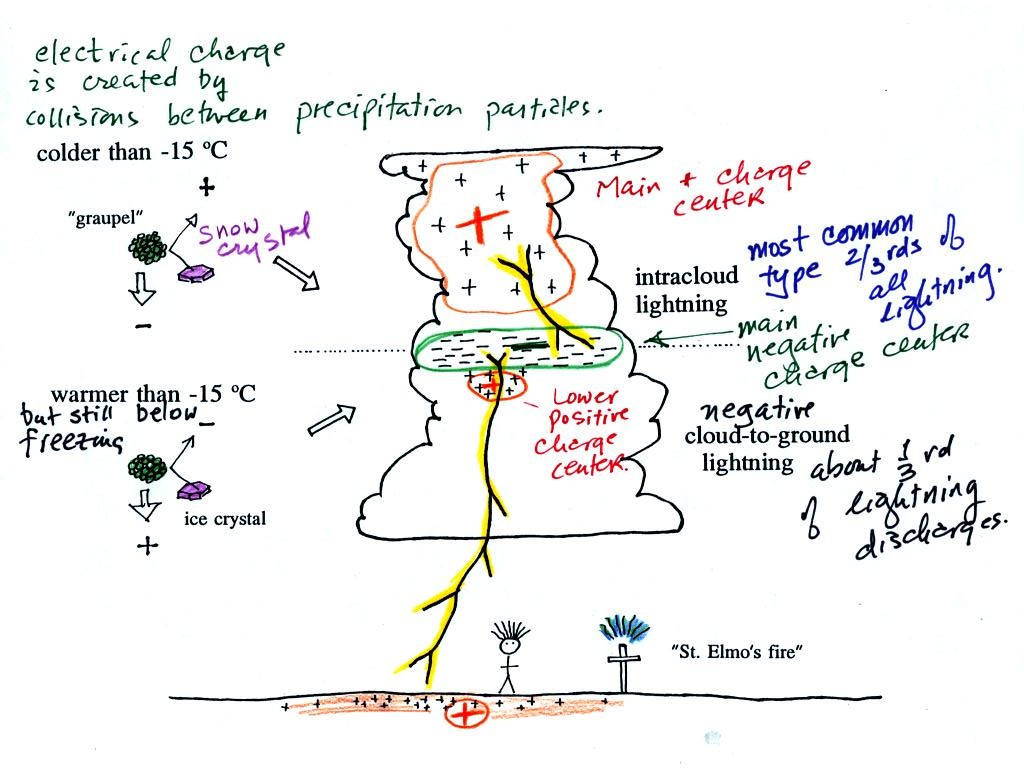 electrical charge
is created by
collisions between precipitation particles.
colder than -15 ºC
+
"graupel"
snow
crystal
-
warmer than -15 ºC
but still below
freezing
-
ice crystal
+
Main + charge
center
intracloud
lightning
most common
type 2/3rds of
all
lightning.
main
negative
charge center
Lower
positive
charge
center.
negative
cloud-to-ground
lightning
about 1/3 rd
of lightning
discharges.
"St. Elmo's fire"